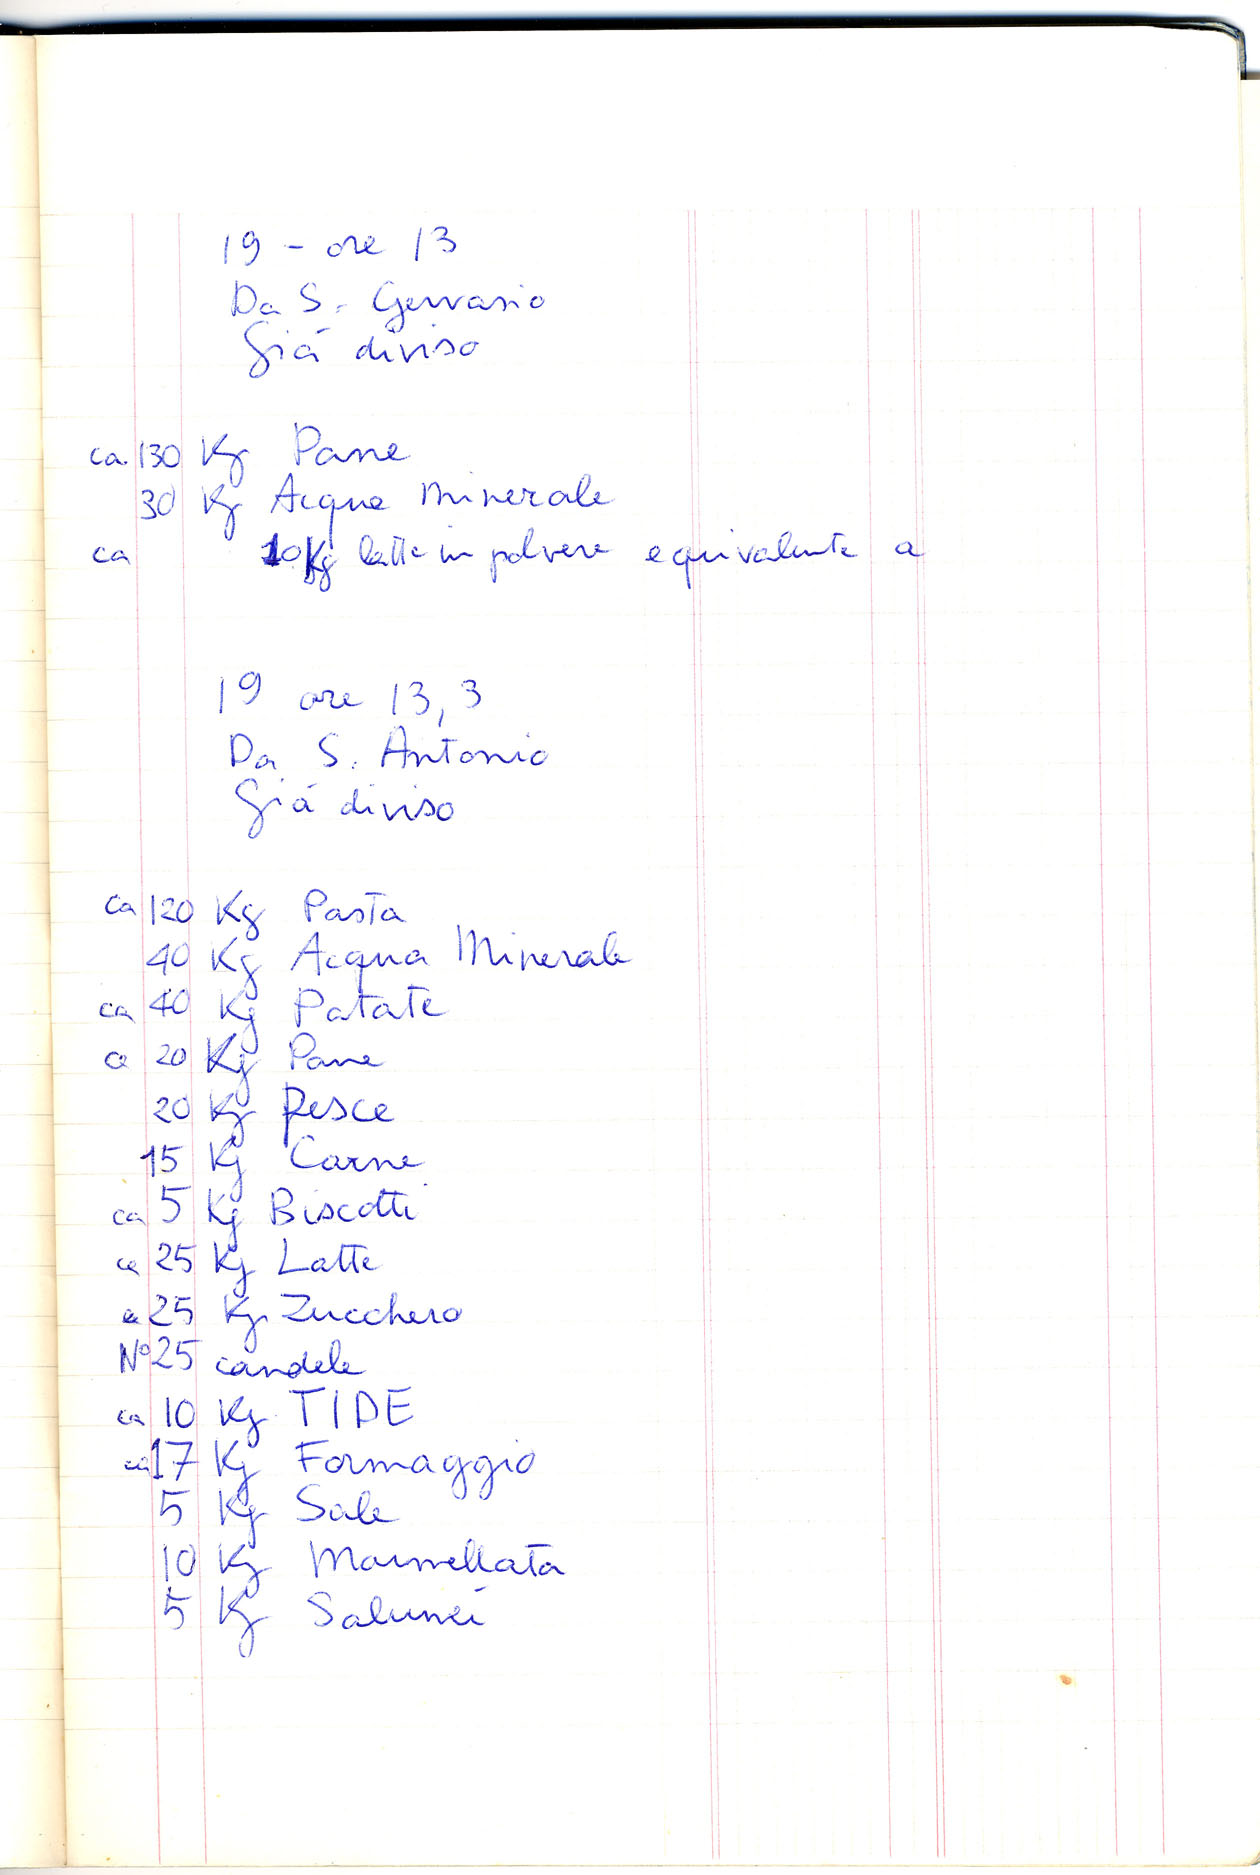 19 - ore 13
Da S. Gervasio
Giá diviso
ca. 130 Kg Pane
30 Kg Acqua Minerale
ca 10 Kg latte in polvere equivalente a
19 ore 13,3
Da S. Antonio
Giá diviso
ca 120 Kg Pasta
40 Kg Acqua Minerale
ca 40 Kg Patate
ca 20 Kg Pane
20 Kg Pesce
15 Kg Carne
ca 5 Kg Biscotti
ca 25 Kg Latte
ca 25 Kg Zucchero
N° 25 candele
ca 10 Kg TIDE
ca 17 Kg Formaggio
5 Kg Sale
10 Kg Marmellata
5 Kg Salumi